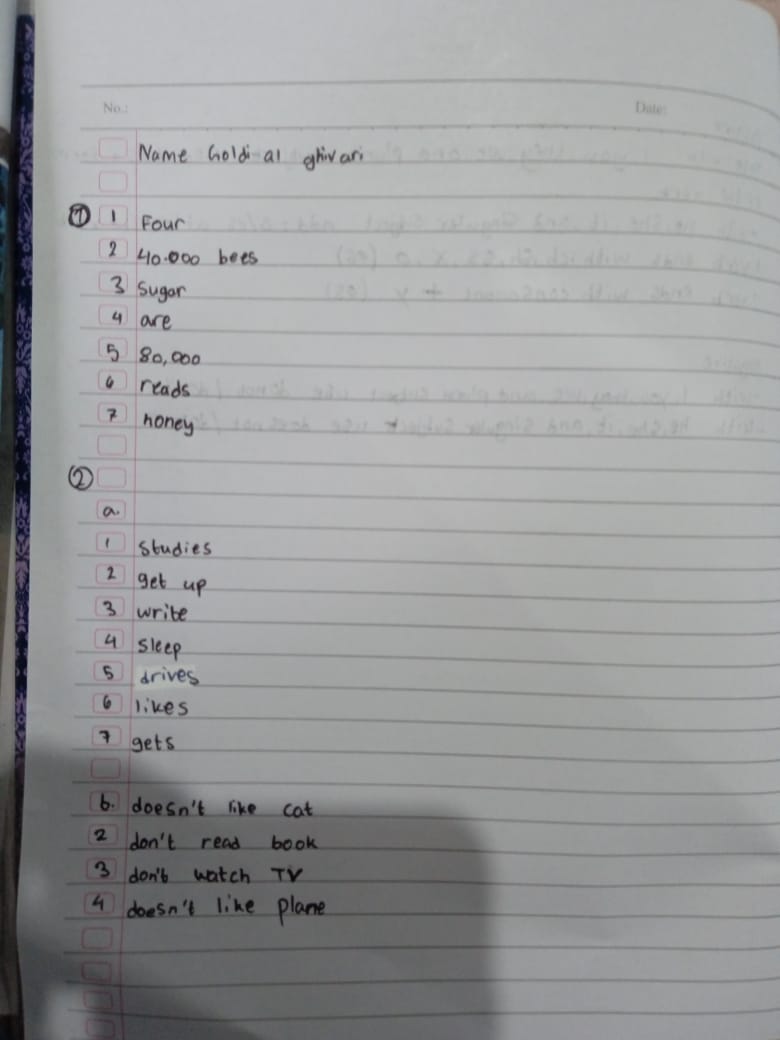 No.: Date:
Name Goldi al ghivari
① 1 Four
2 40.000 bees
3 Sugar
4 are
5 80,000
6 reads
7 honey
②
a.
1 Studies
2 get up
3 write
4 Sleep
5 drives
6 likes
7 gets
b. doesn't like cat
2 don't read book
3 don't watch TV
4 doesn't like plane